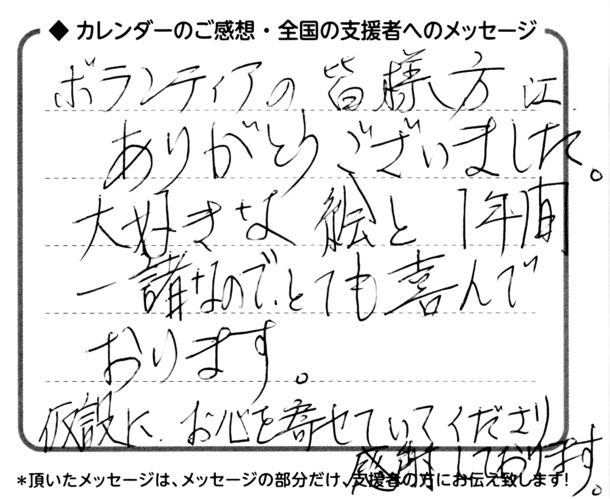 ◆ カレンダーのご感想・全国の支援者へのメッセージ
ボランティアの皆様方に
ありがとうございました。
大好きな絵と1年間
一諸なので、とても喜んで
おります。
仮設に、お心を寄せていてくださり
感謝しております。
*頂いたメッセージは、メッセージの部分だけ、支援者の方にお伝え致します!